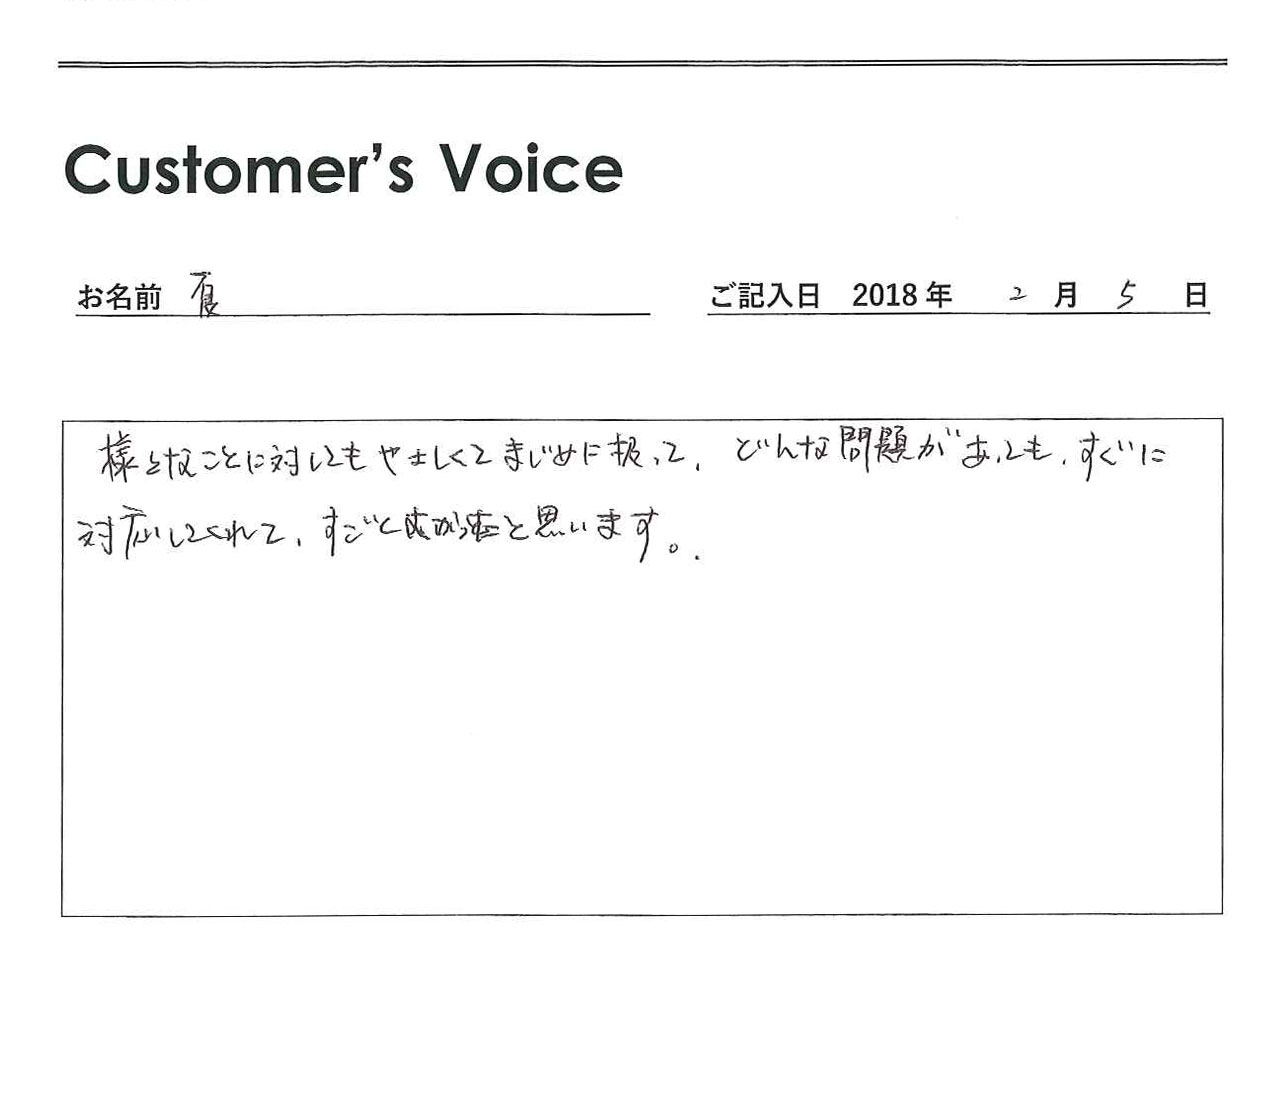 Customer's Voice
お名前
ご記入日 2018年 2月 5日
様々なことに対してもやさしくてまじめに扱って、どんな問題があっても、すぐに
対応してくれて、すごく と思います。